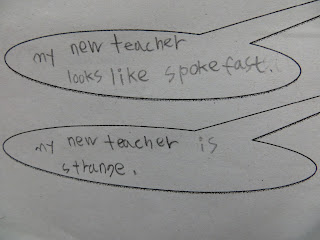 my new teacher
looks like spoke fast.
my new teacher is
strange.